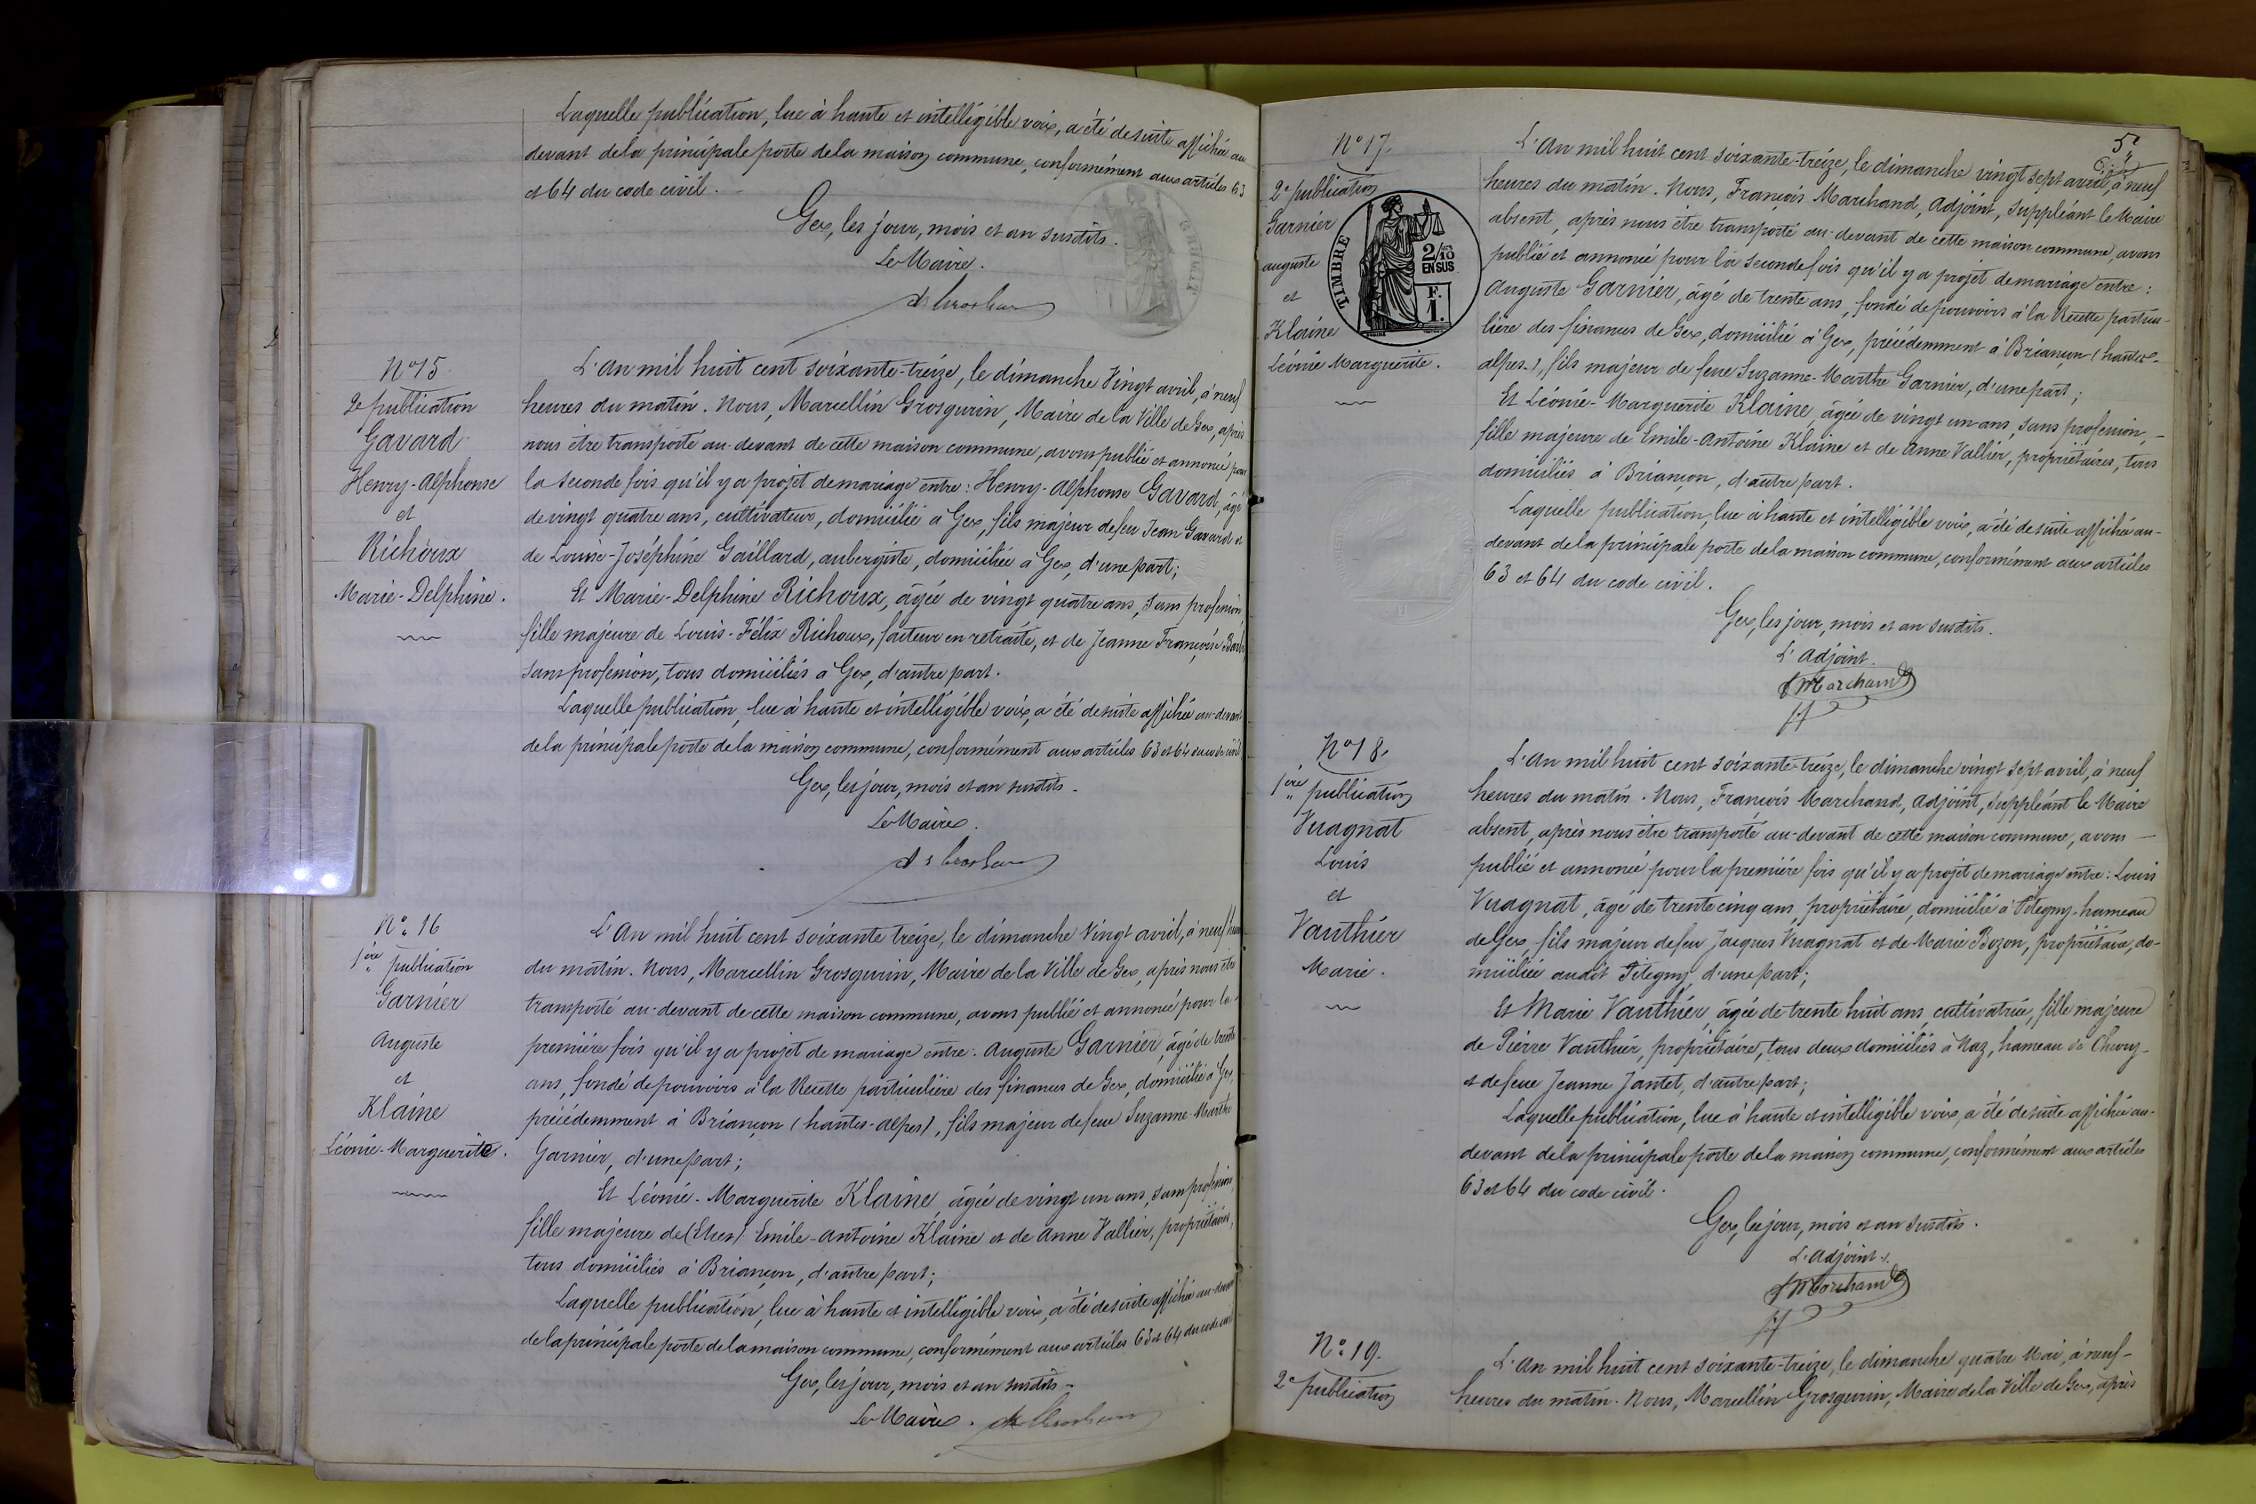 Laquelle publication, lue à haute et intelligible voix, a été de suite affichée au
devant de la principale porte de la maison commune, conformément aux articles 63
et 64 du code civil.
Gex, les jour, mois et an susdits.
Le Maire.
N° 15.
2e publication
Gavard
Henry-Alphonse
et
Richoux
Marie-Delphine.
L'An mil huit cent soixante-treize, le dimanche Vingt avril, à neuf
heures du matin. Nous, Marcellin Grosgurin, Maire de la Ville de Gex, après
nous être transporté au-devant de cette maison commune, avons publié et annoncé pour
la seconde fois qu'il y a projet de mariage entre: Henry-Alphonse Gavard, âgé
de vingt quatre ans, cultivateur, domicilié à Gex, fils majeur de feu Jean Gavard et
de Louise-Joséphine Gaillard, aubergiste, domiciliée à Gex, d'une part;
Et Marie-Delphine Richoux, âgée de vingt quatre ans, sans profession,
fille majeure de Louis-Félix Richoux, facteur en retraite, et de Jeanne Françoise
sans profession, tous domiciliés à Gex, d'autre part.
Laquelle publication, lue à haute et intelligible voix, a été de suite affichée au-devant
de la principale porte de la maison commune, conformément aux articles 63 et 64 du code civil
Gex, les jour, mois et an susdits.
Le Maire.
N° 16
1ère publication
Garnier
Auguste
et
Klaine
Léonie-Marguerite.
L'An mil huit cent soixante treize, le dimanche Vingt avril, à neuf heures
du matin. Nous, Marcellin Grosgurin, Maire de la Ville de Gex, après nous être
transporté au-devant de cette maison commune, avons publié et annoncé pour la
première fois qu'il y a projet de mariage entre: Auguste Garnier, âgé de trente
ans, fondé de pouvoirs à la Recette particulière des finances de Gex, domicilié à Gex,
précédemment à Briançon (hautes-Alpes), fils majeur de feue Suzanne-Marthe
Garnier, d'une part;
Et Léonie-Marguerite Klaine, âgée de vingt un ans, sans profession,
fille majeure de Emile-Antoine Klaine et de Anne Vallier, propriétaires,
tous domiciliés à Briançon, d'autre part;
Laquelle publication, lue à haute et intelligible voix, a été de suite affichée au-devant
de la principale porte de la maison commune, conformément aux articles 63 et 64 du code civil
Gex, les jour, mois et an susdits.
Le Maire.
N° 17.
2e publication
Garnier
auguste
et
Klaine
Léonie Marguerite.
TIMBRE
2/10
EN SUS
F.
1.
L'An mil huit cent soixante-treize, le dimanche vingt sept avril, à neuf
heures du matin. Nous, François Marchand, Adjoint, suppléant le Maire
absent, après nous être transporté au-devant de cette maison commune, avons
publié et annoncé pour la seconde fois qu'il y a projet de mariage entre:
Auguste Garnier, âgé de trente ans, fondé de pouvoirs à la Recette particu-
lière des finances de Gex, domicilié à Gex, précédemment à Briançon (hautes-
alpes), fils majeur de feue Suzanne-Marthe Garnier, d'une part;
Et Léonie-Marguerite Klaine, âgée de vingt un ans, sans profession,
fille majeure de Emile-Antoine Klaine et de Anne Vallier, propriétaires, tous
domiciliés à Briançon, d'autre part.
Laquelle publication, lue à haute et intelligible voix, a été de suite affichée au-
devant de la principale porte de la maison commune, conformément aux articles
63 et 64 du code civil.
Gex, les jour, mois et an susdits.
L'Adjoint.
f Marchand
N° 18.
1ère publication
Vuagnat
Louis
et
Vauthier
Marie.
L'An mil huit cent soixante-treize, le dimanche vingt sept avril, à neuf
heures du matin. Nous, François Marchand, Adjoint, suppléant le Maire
absent, après nous être transporté au-devant de cette maison commune, avons
publié et annoncé pour la première fois qu'il y a projet de mariage entre: Louis
Vuagnat, âgé de trente cinq ans, propriétaire, domicilié à Pitegny-hameau
de Gex, fils majeur de feu Jacques Vuagnat et de Marie Bozon, propriétaire, do-
miciliée audit Pitegny, d'une part;
Et Marie Vauthier, âgée de trente huit ans, cultivatrice, fille majeure
de Pierre Vauthier, propriétaire, tous deux domiciliés à Naz, hameau de Chevry
et de feue Jeanne Jantet, d'autre part;
Laquelle publication, lue à haute et intelligible voix, a été de suite affichée au-
devant de la principale porte de la maison commune, conformément aux articles
63 et 64 du code civil.
Gex, les jour, mois et an susdits.
L'Adjoint.
f Marchand
N° 19.
2e publication
L'An mil huit cent soixante-treize, le dimanche quatre Mai, à neuf
heures du matin. Nous, Marcellin Grosgurin, Maire de la Ville de Gex, après